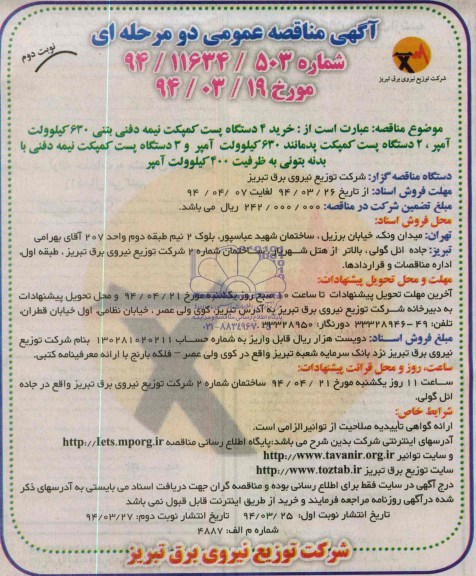 آگهی مناقصه عمومی دو مرحله ای
شماره ۵۰۳ / ۱۱۶۳۴ / ۹۴
مورخ ۱۹ / ۰۳ / ۹۴
نوبت دوم
شرکت توزیع نیروی برق تبریز
موضوع مناقصه: عبارت است از : خرید ۴ دستگاه پست کمپکت نیمه دفنی بتنی ۶۳۰ کیلوولت
آمپر ، ۲ دستگاه پست کمپکت پدمانتد ۶۳۰ کیلوولت آمپر و ۳ دستگاه پست کمپکت نیمه دفنی با
بدنه بتونی به ظرفیت ۴۰۰ کیلوولت آمپر
دستگاه مناقصه گزار: شرکت توزیع نیروی برق تبریز
مهلت فروش اسناد: از تاریخ ۲۶ / ۰۳ / ۹۴ لغایت ۰۷ / ۰۴ / ۹۴
مبلغ تضمین شرکت در مناقصه: ۰۰۰ / ۰۰۰ / ۲۴۲ ریال می باشد.
محل فروش اسناد:
تهران: میدان ونک، خیابان برزیل ، ساختمان شهید عباسپور، بلوک ۲ نیم طبقه دوم واحد ۲۰۷ آقای بهرامی
تبریز: جاده ائل گولی، بالاتر از هتل شهریار، ساختمان شماره ۲ شرکت توزیع نیروی برق تبریز ، طبقه اول،
اداره مناقصات و قراردادها.
مهلت و محل تحویل پیشنهادات:
آخرین مهلت تحویل پیشنهادات تا ساعت ۱۰ صبح روز یکشنبه مورخ ۲۱ / ۰۴ / ۹۴ و محل تحویل پیشنهادات
به دبیرخانه شرکت توزیع نیروی برق تبریز به آدرس تبریز، کوی ولی عصر ، خیابان نظامی، اول خیابان قطران،
تلفن: ۴۹-۳۳۳۲۸۹۴۶ دورنگار: ۳۳۳۲۸۹۵۰
مبلغ فروش اسناد: دویست هزار ریال قابل واریز به شماره حساب ۱۳۰۲۸۱۰۲۰۲۱۱ بنام شرکت توزیع
نیروی برق تبریز نزد بانک سرمایه شعبه تبریز واقع در کوی ولی عصر – فلکه بارنج با ارائه معرفینامه کتبی.
ساعت، روز و محل قرائت پیشنهادات:
ساعت ۱۱ روز یکشنبه مورخ ۲۱ / ۰۴ / ۹۴ ساختمان شماره ۲ شرکت توزیع نیروی برق تبریز واقع در جاده
ائل گولی.
شرایط خاص:
ارائه گواهی تأییدیه صلاحیت از توانیرالزامی است.
آدرسهای اینترنتی شرکت بدین شرح می باشد:پایگاه اطلاع رسانی مناقصه http://Iets.mporg.ir
و سایت توانیر http://www.tavanir.org.ir
سایت توزیع برق تبریز http://www.toztab.ir
درج آگهی در سایت فقط برای اطلاع رسانی بوده و مناقصه گران جهت دریافت اسناد می بایستی به آدرسهای ذکر
شده درآگهی روزنامه مراجعه فرمایند و خرید از طریق اینترنت قابل قبول نمی باشد
تاریخ انتشار نوبت اول: ۹۴/۰۳/۲۵ تاریخ انتشار نوبت دوم: ۹۴/۰۳/۲۷
شماره م الف: ۴۸۸۷
شرکت توزیع نیروی برق تبریز